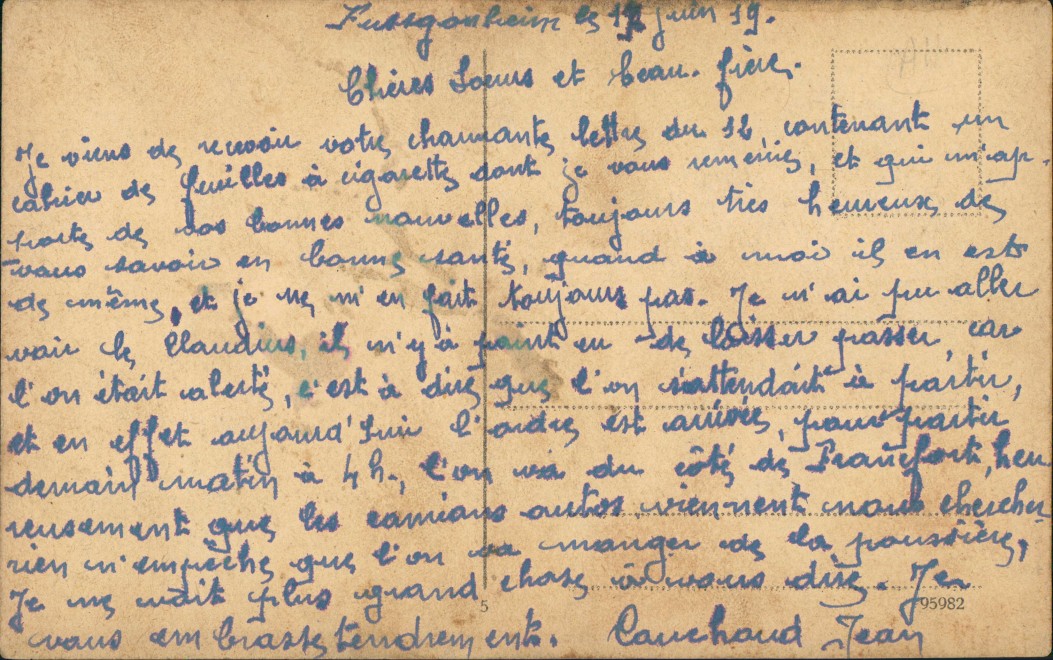 Fussgonheim le 17 juin 19.
Chères Soeurs et beau-frère.
Je viens de recevoir votre charmante lettre du 12, contenant un
cahier de feuilles à cigarette dont je vous remercie, et qui m'ap-
porte de vos bonnes nouvelles, toujours très heureux de
vous savoir en bonne santé, quand à moi il en est
de même, et je ne m'en fait toujours pas. Je n'ai pu aller
voir le Claudius, il n'y à point eu de laisser passer, car
l'on était alerté, c'est à dire que l'on s'attendait à partir,
et en effet aujourd'hui l'ordre est arrivée, pour partir
demain matin à 4 h., l'on va du côté de Francfort, heu
reusement que les camions autos viennent nous chercher
rien n'empêche que l'on va manger de la poussière,
Je ne voit plus grand chose à vous dire. Je
vous embrasse tendrement. Cauchoud Jean
5
95982